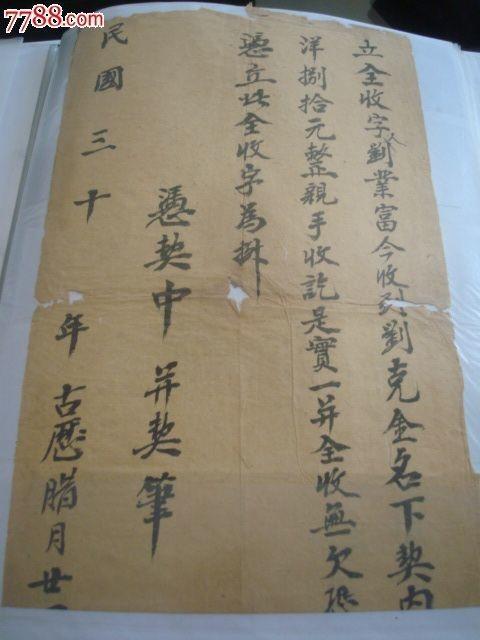 7788.com
立全收字人劉業富今收到劉克金名下契内
洋捌拾元整親手收訖是實一并全收無欠恐
憑立此全收字為㨿
憑契中并契筆
民國三十年古曆腊月廿